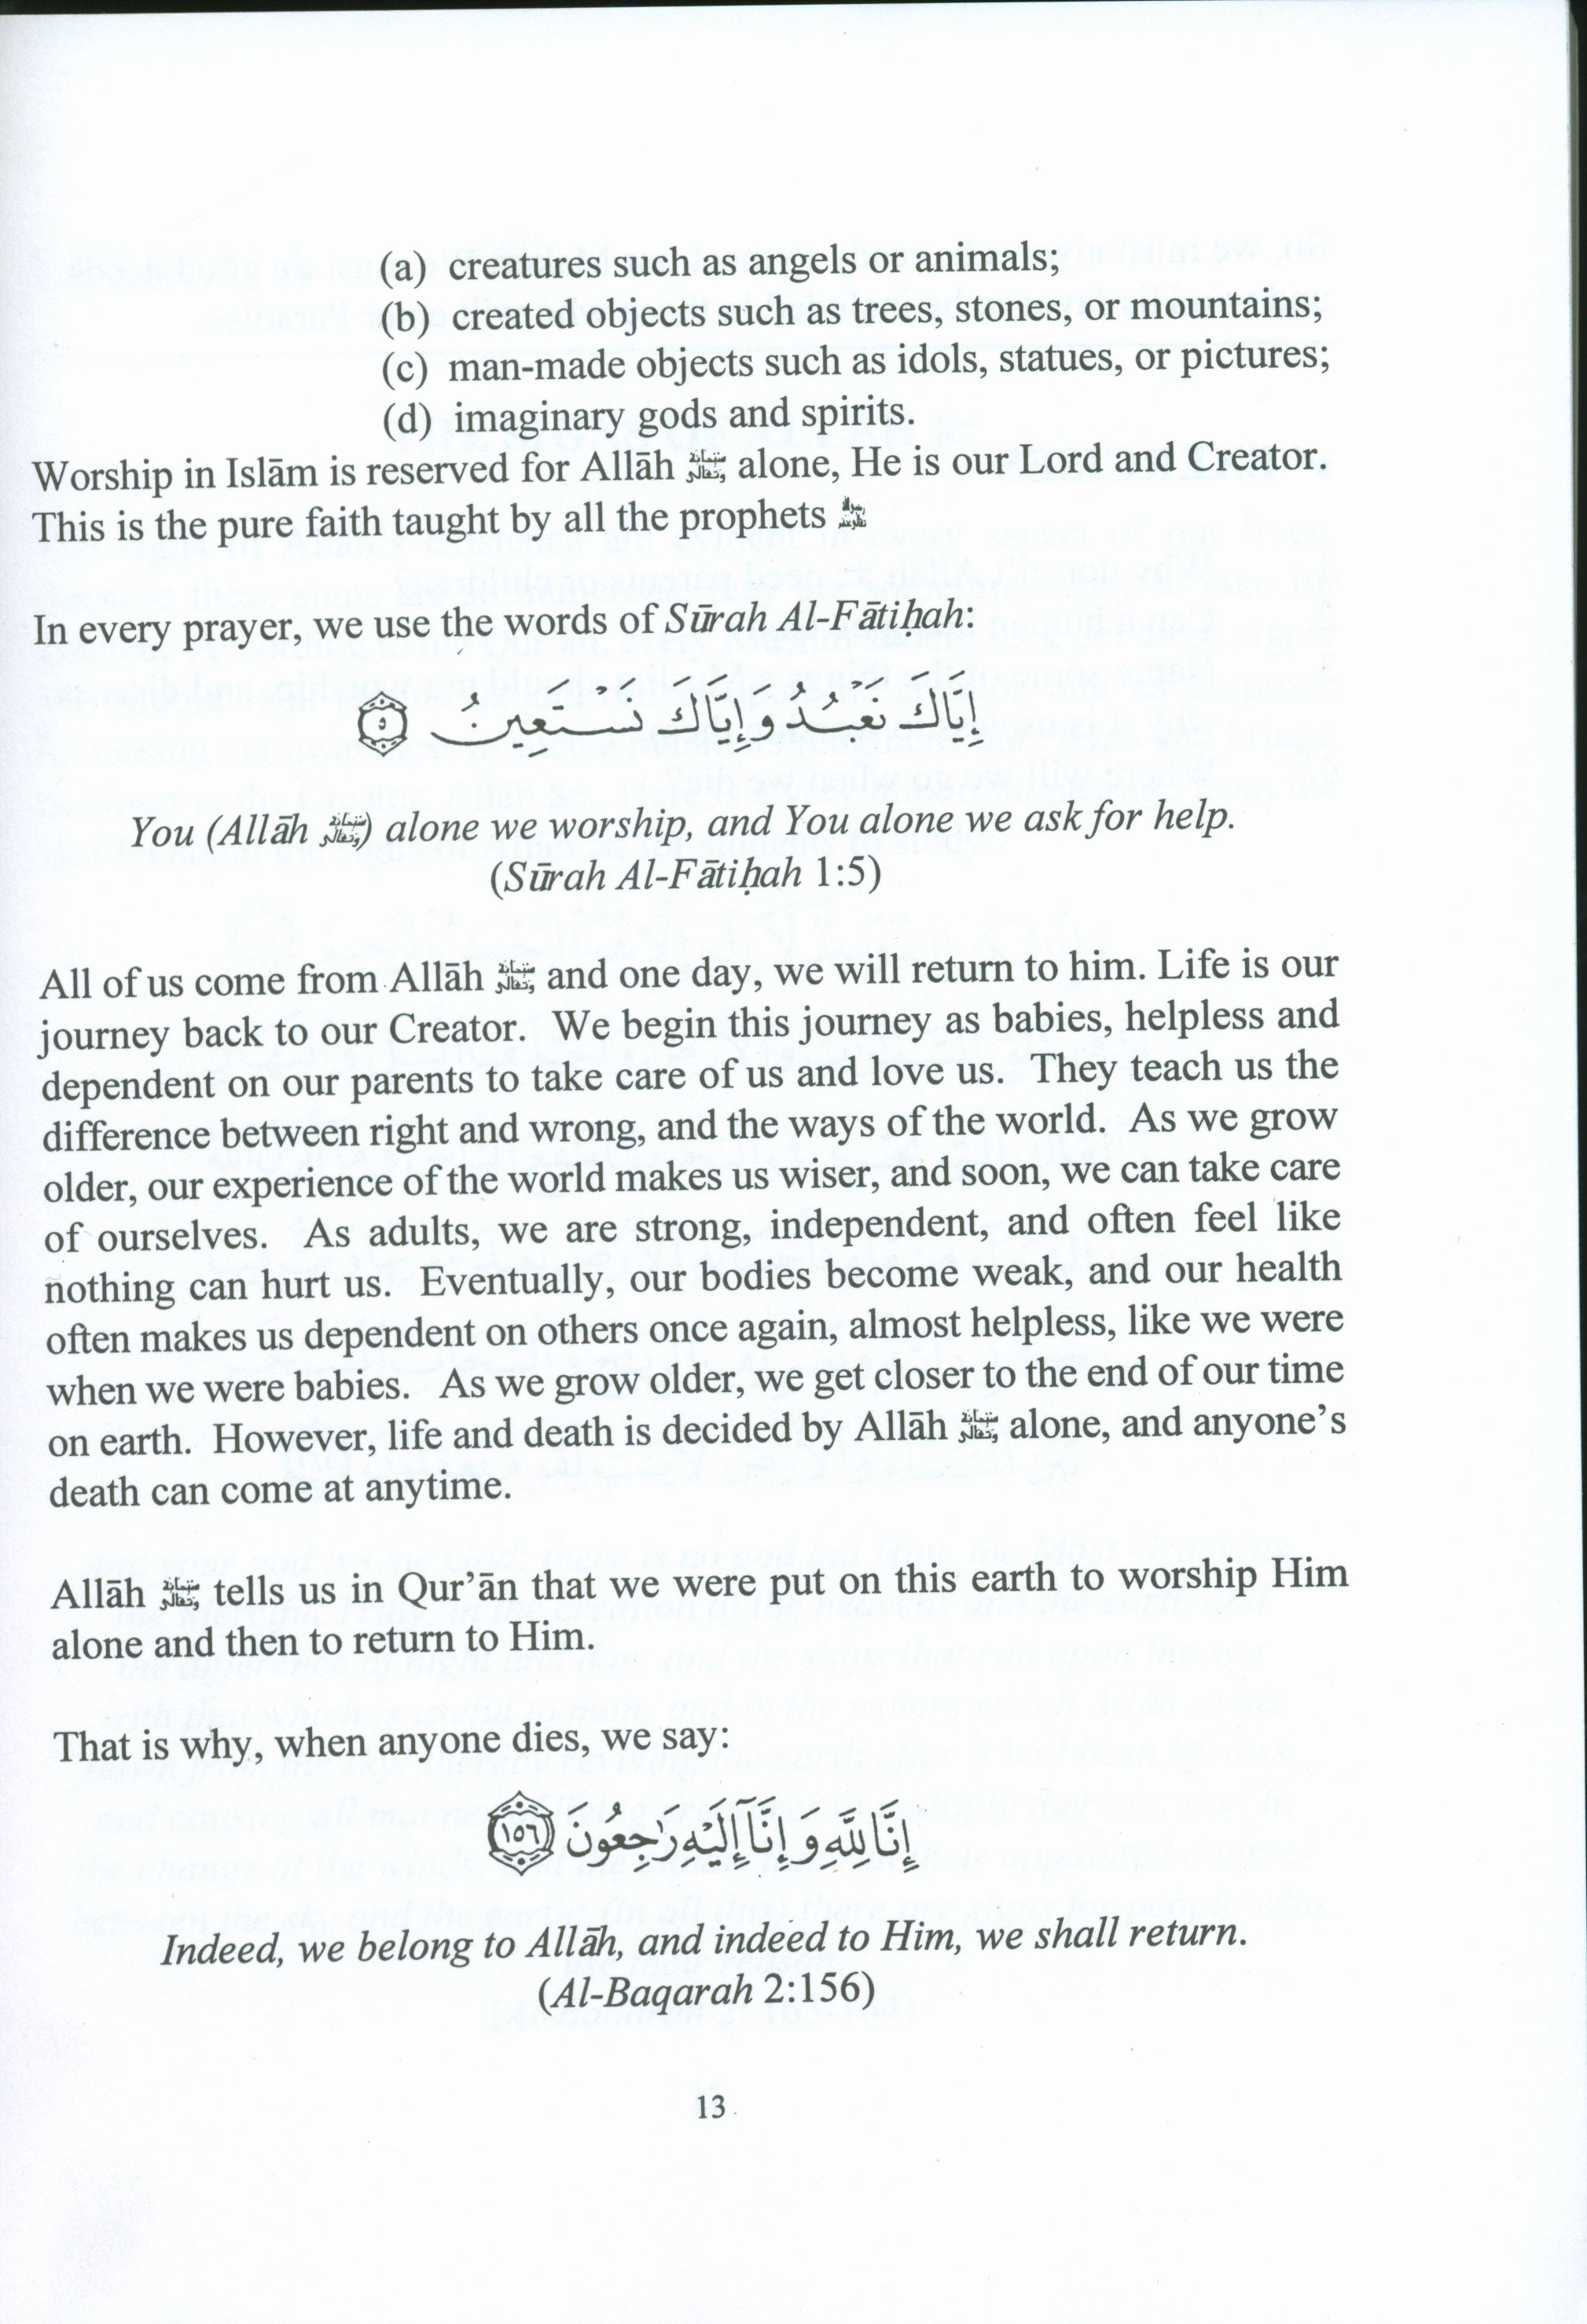 (a) creatures such as angels or animals;
(b) created objects such as trees, stones, or mountains;
(c) man-made objects such as idols, statues, or pictures;
(d) imaginary gods and spirits.
Worship in Islām is reserved for Allāh سبحانه وتعالى alone, He is our Lord and Creator.
This is the pure faith taught by all the prophets
In every prayer, we use the words of Sūrah Al-Fātiḥah:
إِيَّاكَ نَعْبُدُ وَإِيَّاكَ نَسْتَعِينُ ٥
You (Allāh سبحانه وتعالى) alone we worship, and You alone we ask for help.
(Sūrah Al-Fātiḥah 1:5)
All of us come from Allāh سبحانه وتعالى and one day, we will return to him. Life is our
journey back to our Creator. We begin this journey as babies, helpless and
dependent on our parents to take care of us and love us. They teach us the
difference between right and wrong, and the ways of the world. As we grow
older, our experience of the world makes us wiser, and soon, we can take care
of ourselves. As adults, we are strong, independent, and often feel like
nothing can hurt us. Eventually, our bodies become weak, and our health
often makes us dependent on others once again, almost helpless, like we were
when we were babies. As we grow older, we get closer to the end of our time
on earth. However, life and death is decided by Allāh سبحانه وتعالى alone, and anyone's
death can come at anytime.
Allāh سبحانه وتعالى tells us in Qur'ān that we were put on this earth to worship Him
alone and then to return to Him.
That is why, when anyone dies, we say:
إِنَّا لِلَّهِ وَإِنَّآ إِلَيْهِ رَٰجِعُونَ ١٥٦
Indeed, we belong to Allāh, and indeed to Him, we shall return.
(Al-Baqarah 2:156)
13